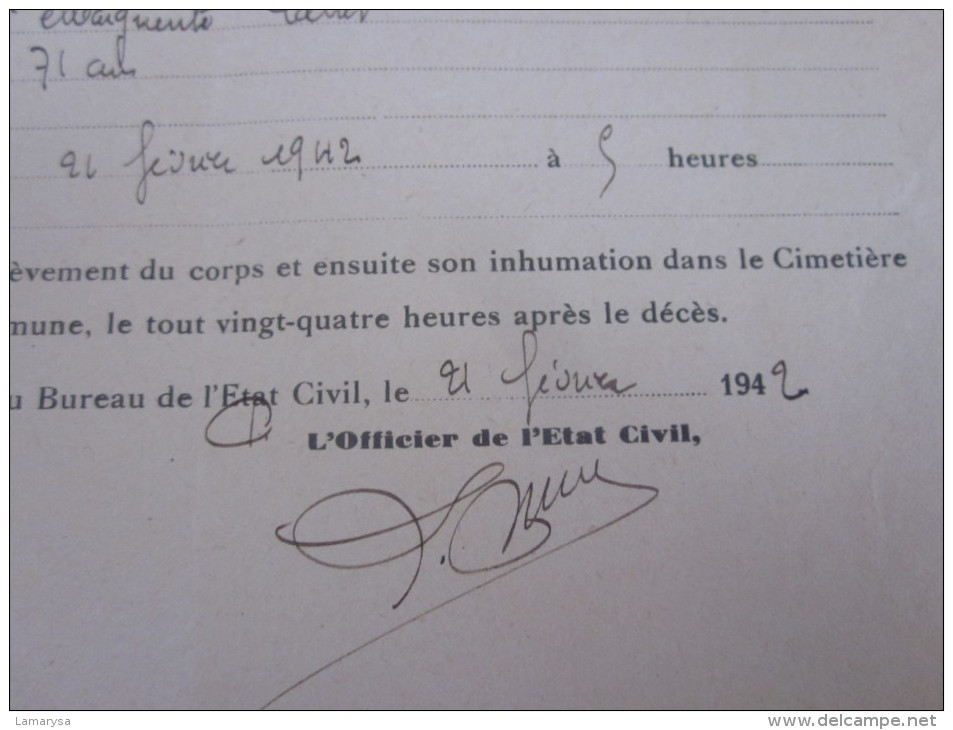 71 ans
21 février 1942 à 5 heures
èvement du corps et ensuite son inhumation dans le Cimetière
mune, le tout vingt-quatre heures après le décès.
u Bureau de l'Etat Civil, le 21 février 1942
L'Officier de l'Etat Civil,
Lamarysa
www.delcampe.net